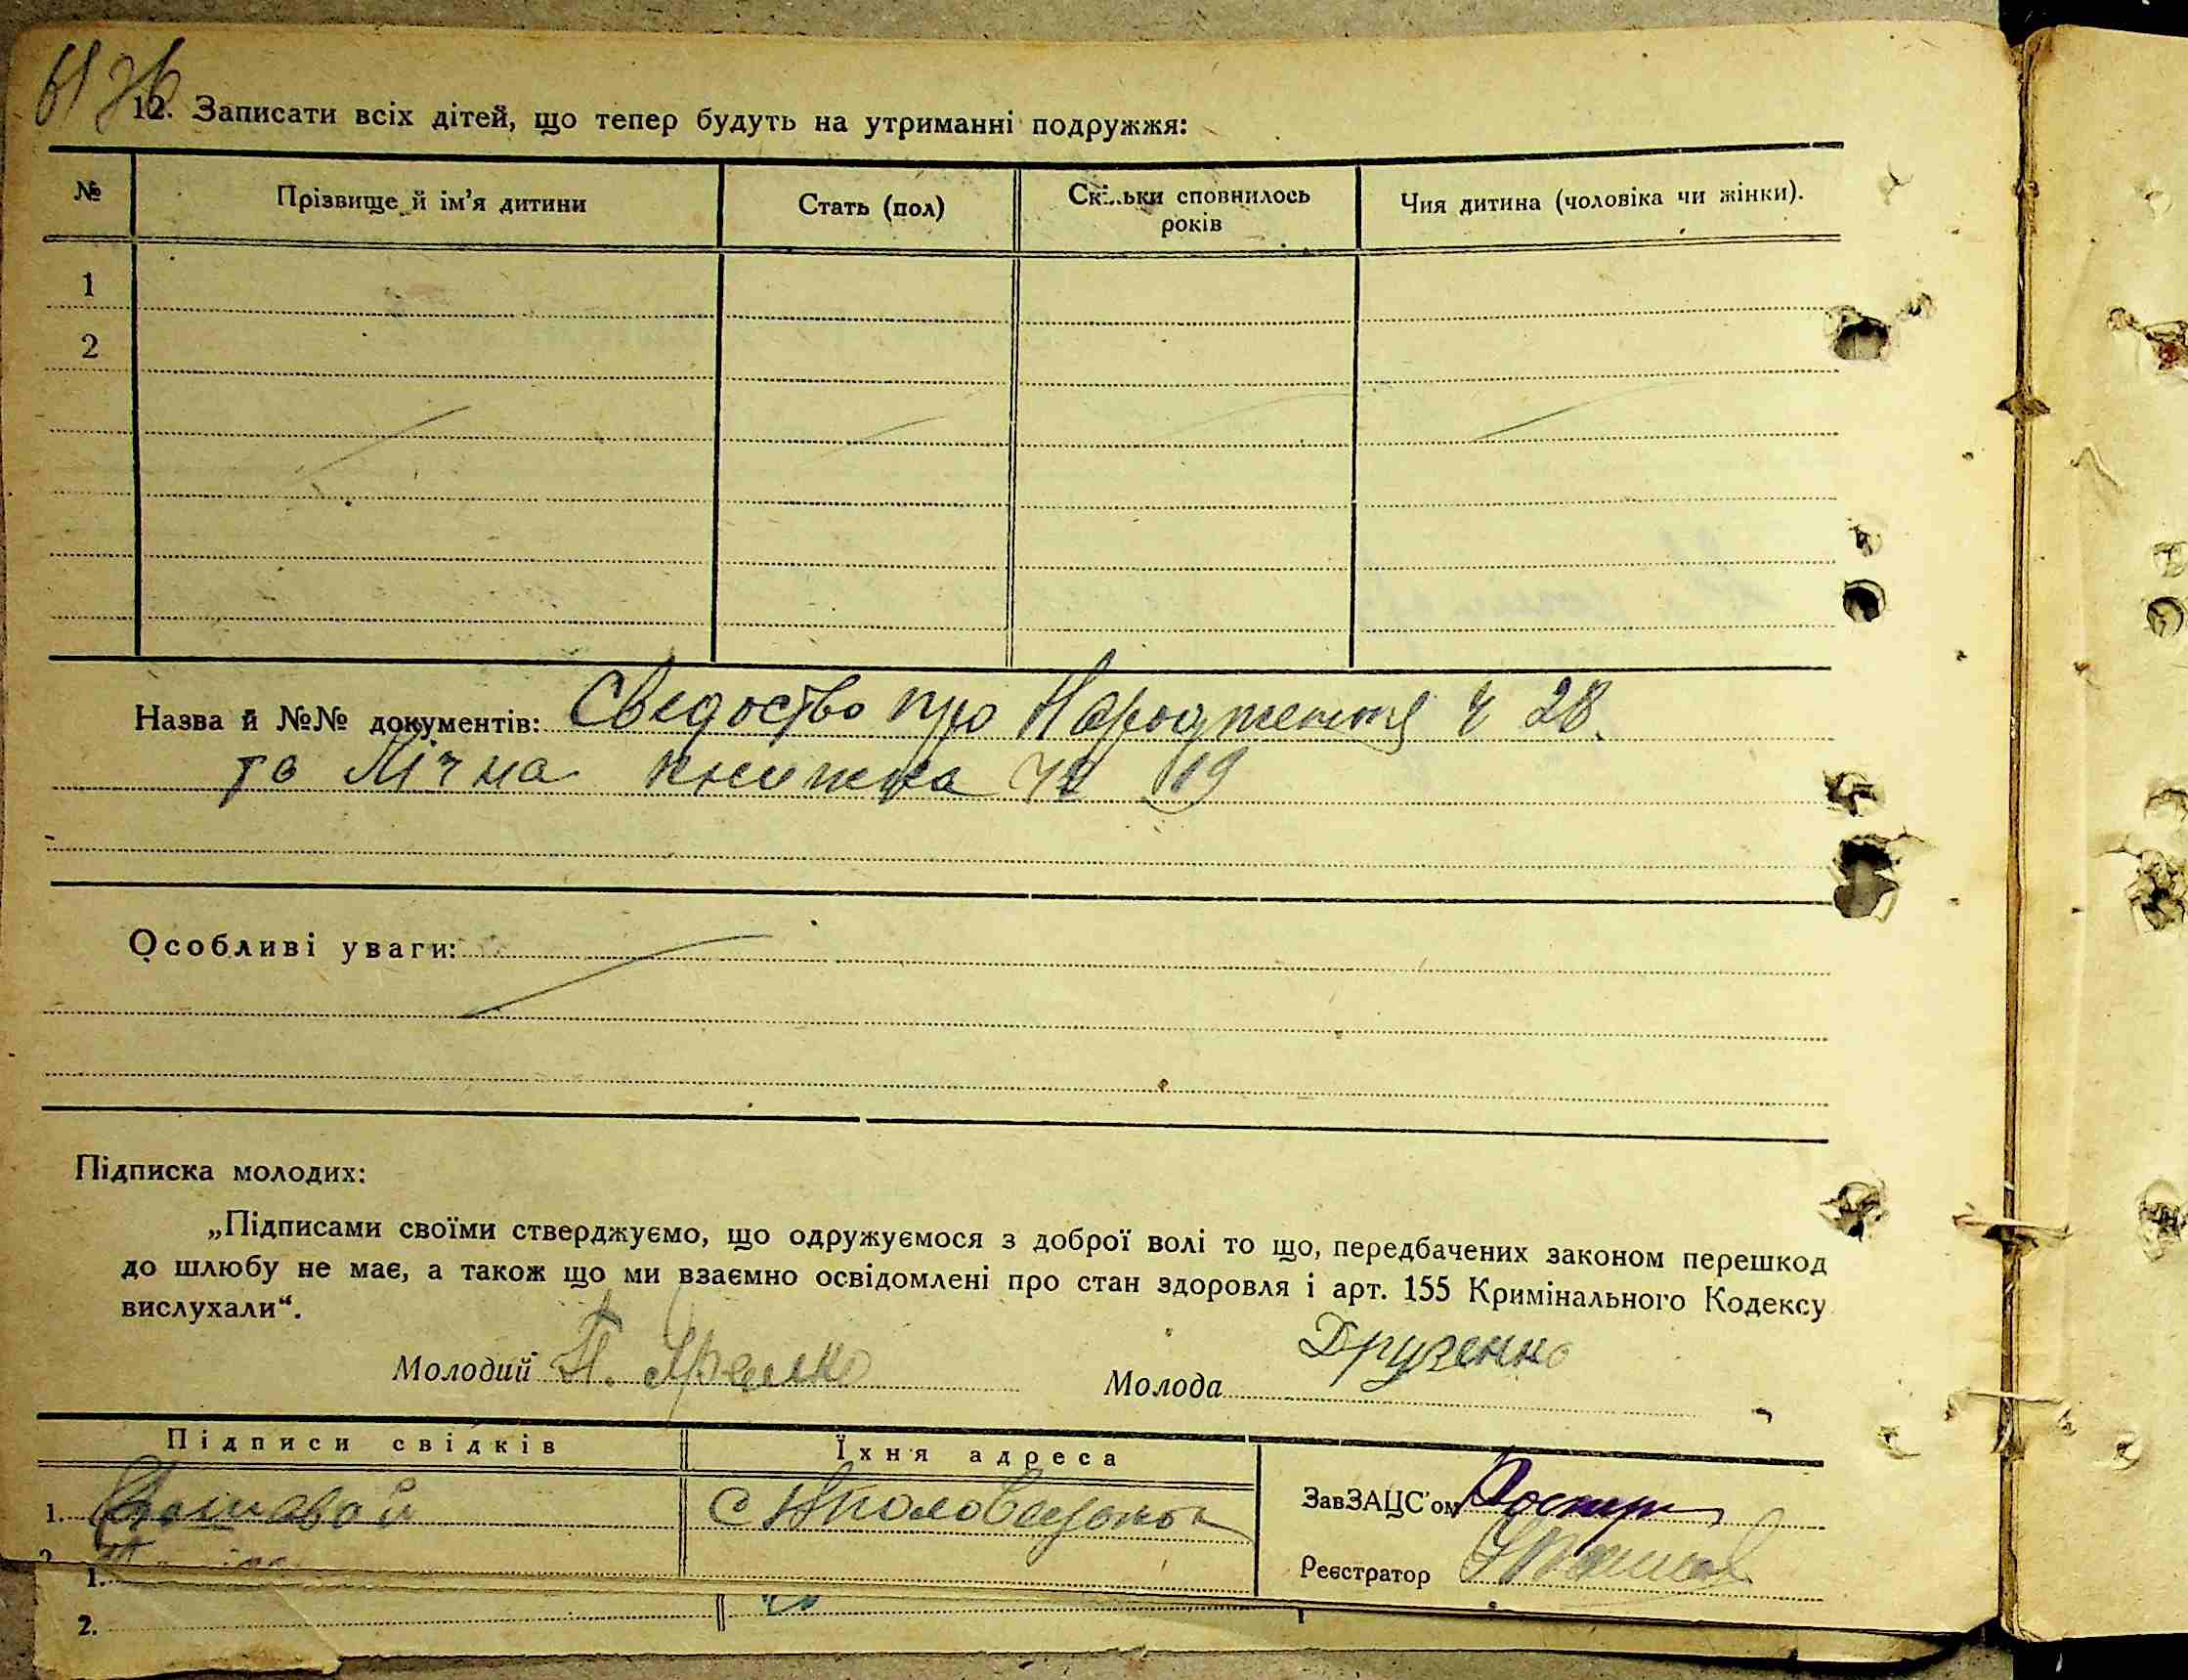 12. Записати всіх дітей, що тепер будуть на утриманні подружжя:
№ Прізвище й ім'я дитини Стать (пол) Скільки сповнилось років Чия дитина (чоловіка чи жінки).
1
2
Назва й №№ документів: Сведоство про Народження ч 28.
та Лічна книжка 19
Особливі уваги:
Підписка молодих:
„Підписами своїми стверджуємо, що одружуємося з доброї волі то що, передбачених законом перешкод
до шлюбу не має, а також що ми взаємно освідомлені про стан здоровля і арт. 155 Кримінального Кодексу
вислухали“.
Молодий П. Молода Друзенко
Підписи свідків Їхня адреса
1. с ЗавЗАЦС'ом
2. Реєстратор
1.
2.